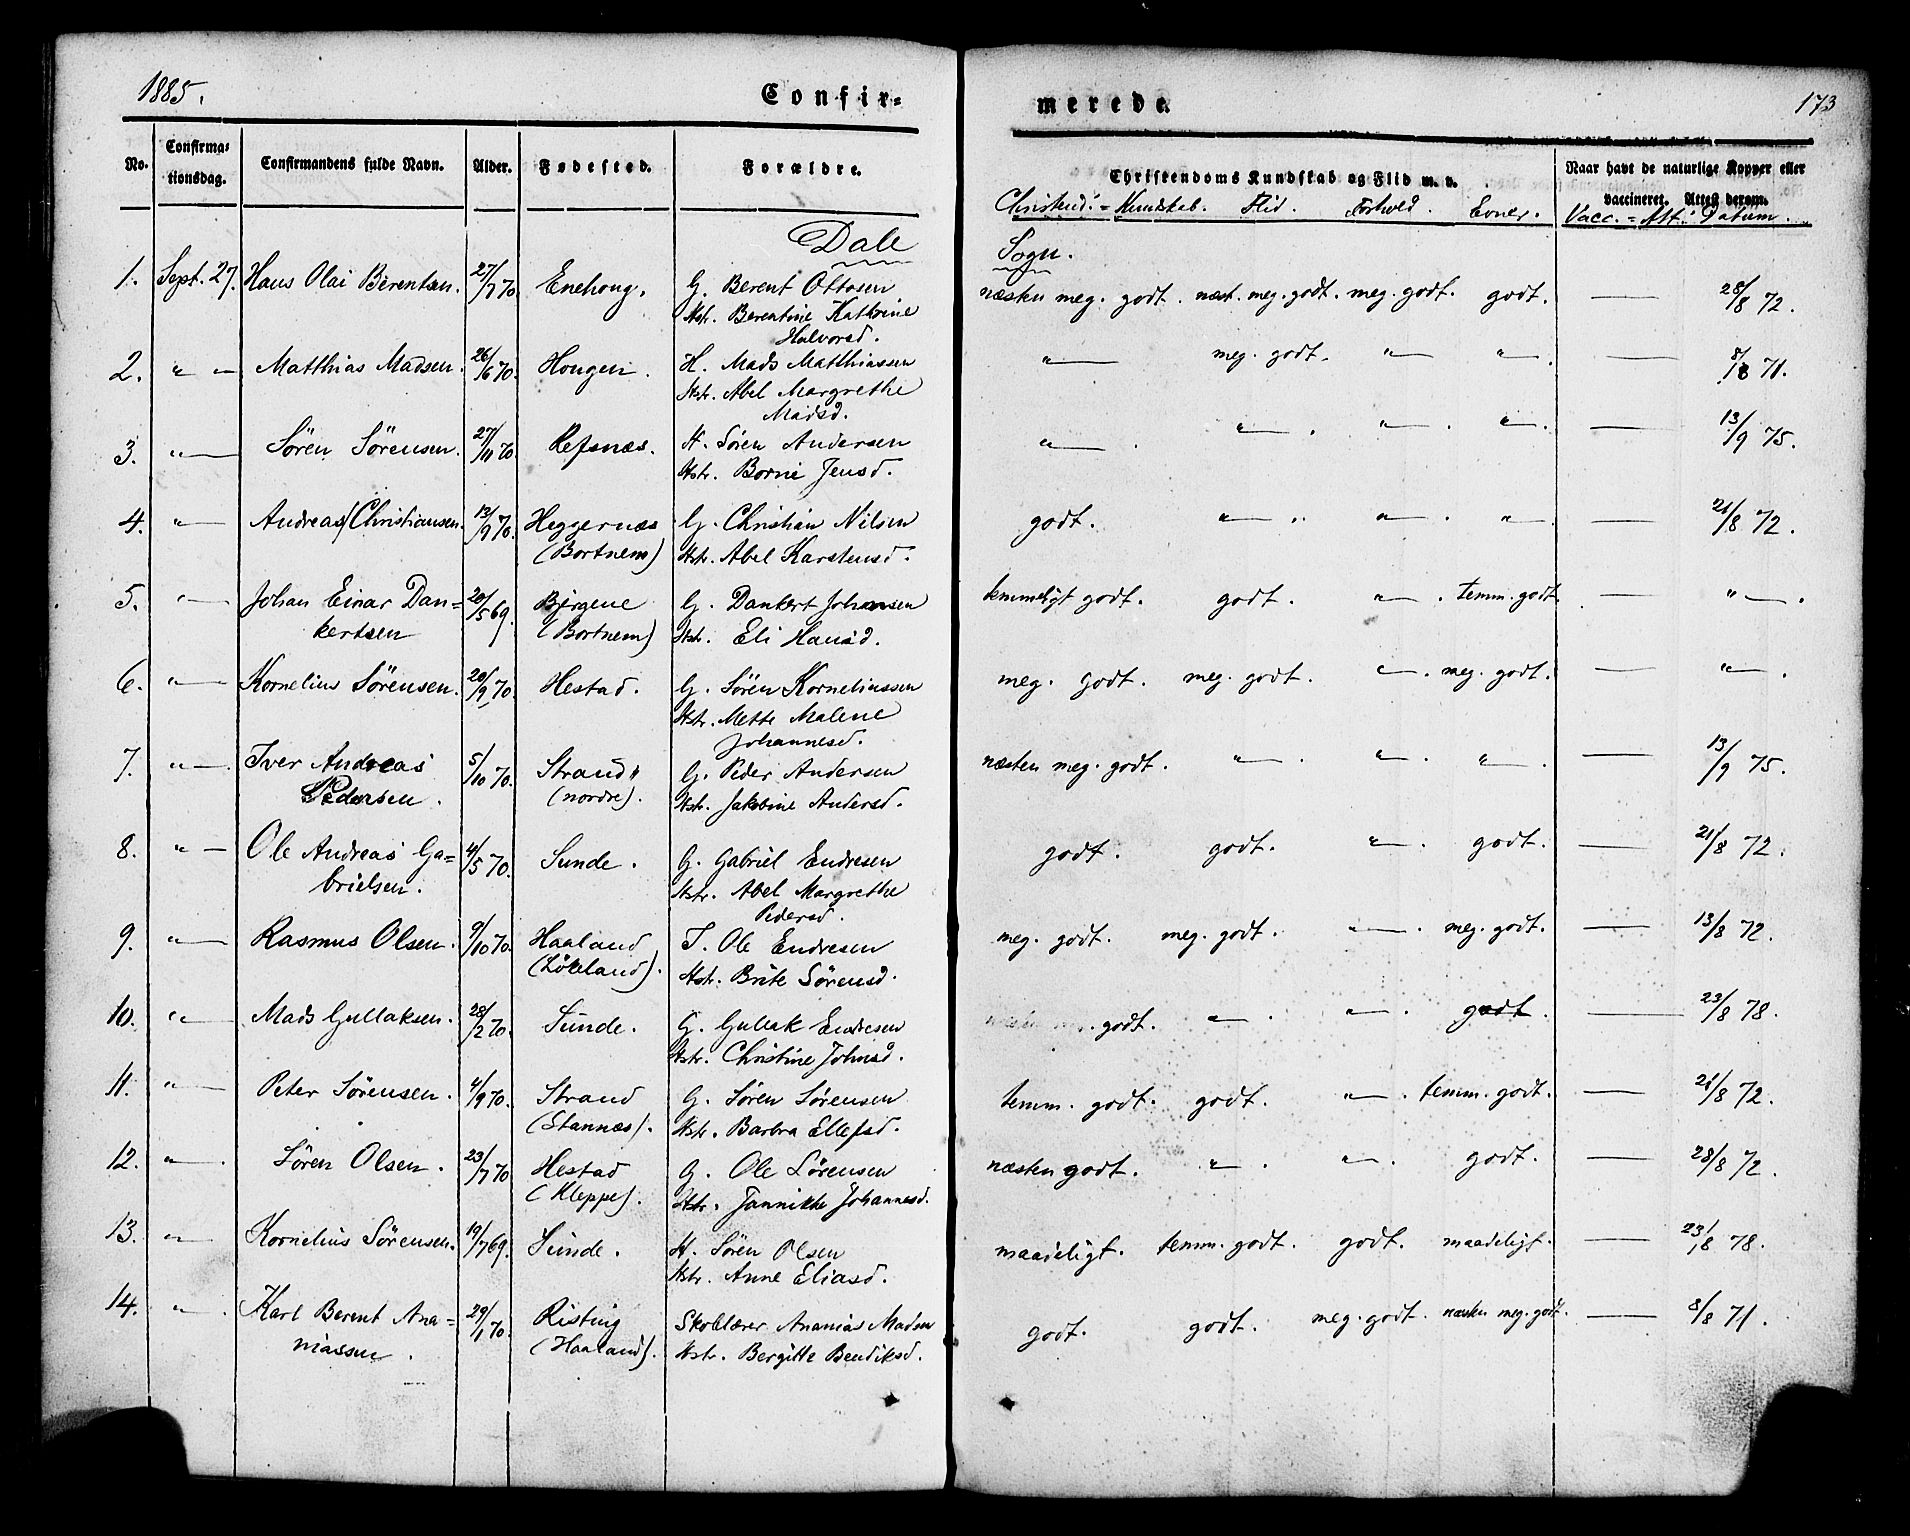 1885.
Confir-
merede.
173
No.
Confirma-
tionsdag.
Confirmandens fulde Navn.
Alder.
Fødested.
Forældre.
Christendoms Kundskab og Flid m. v.
Naar havt de naturlige Kopper eller
vaccineret. Attest derom.
Christend: = Kundskab. Flid. Forhold. Evner. Vacc. = Att: Datum.
Dale Sogn.
1. Sept. 27. Hans Olai Berentsen. 27/7 70. Enehoug. G. Berent Ottosen næsten meg. godt. næst. meg. godt. meg. godt. godt. — 28/8 72.
Hstr. Berentine Kathrine
Halvorsd.
2. " " Matthias Madsen. 26/6 70. Hougen. H. Mads Matthiassen " meg. godt. " " — 8/8 71.
Hstr. Abel Margrethe
Madsd.
3. " Sören Sörensen. 27/11 70. Refsnæs. H. Sören Andersen " " " " — 13/9 75.
Hstr. Borni Jensd.
4. " Andreas Christiansen. 13/9 70. Heggernæs G. Christian Nilsen godt. " " " — 21/8 72.
(Bortnem) Hstr. Abel Karstensd.
5. " Johan Einar Dan= 20/5 69. Björgene G. Dankert Johansen temmeligt godt. godt. " temm. godt. — "
kertsen (Bortnem) Hstr. Eli Hansd.
6. " Kornelius Sörensen. 20/9 70. Hestad. G. Sören Korneliussen meg. godt. meg. godt. " meg. godt. — "
Hstr. Mette Malene
Johannesd.
7. " Iver Andreas 5/10 70. Strand G. Peder Andersen næsten meg. godt. " " " — 13/9 75.
Pedersen. (nordre). Hstr. Jakobine Andersd.
8. " Ole Andreas Ga= 4/5 70. Sunde. G. Gabriel Endresen godt. godt. " godt. — 21/8 72.
brielsen. Hstr. Abel Margrethe
Pedersd.
9. " Rasmus Olsen. 9/10 70. Haaland T. Ole Endresen meg. godt. meg. godt. " meg. godt. — 13/8 72.
(Lökeland). Hstr. Brite Sörensd.
10. " Mads Gullaksen. 28/2 70. Sunde. G. Gullak Endresen godt. " " godt. — 23/8 78.
Hstr. Christine Johnsd.
11. " Peter Sörensen. 4/9 70. Strand G. Sören Sörensen temm. godt. godt. " temm. godt. — 21/8 72.
(Stannæs). Hstr. Barbra Ellefsd.
12. " Sören Olsen. 23/7 70 Hestad G. Ole Sörensen næsten godt. " " godt. — 28/8 72.
(Kleppe). Hstr. Jannikke Johannesd.
13. " Kornelius Sörensen. 19/7 69. Sunde. H. Sören Olsen maadeligt. temm. godt. godt. maadeligt. — 23/8 78.
Hstr. Anne Eliasd.
14. " Karl Berent Ana= 29/1 70. Risting Skolelærer Ananias Madsen godt. godt. meg. godt. næsten meg. godt. — 8/8 71.
niassen. (Haaland). Hstr. Bergitte Bendiksd.